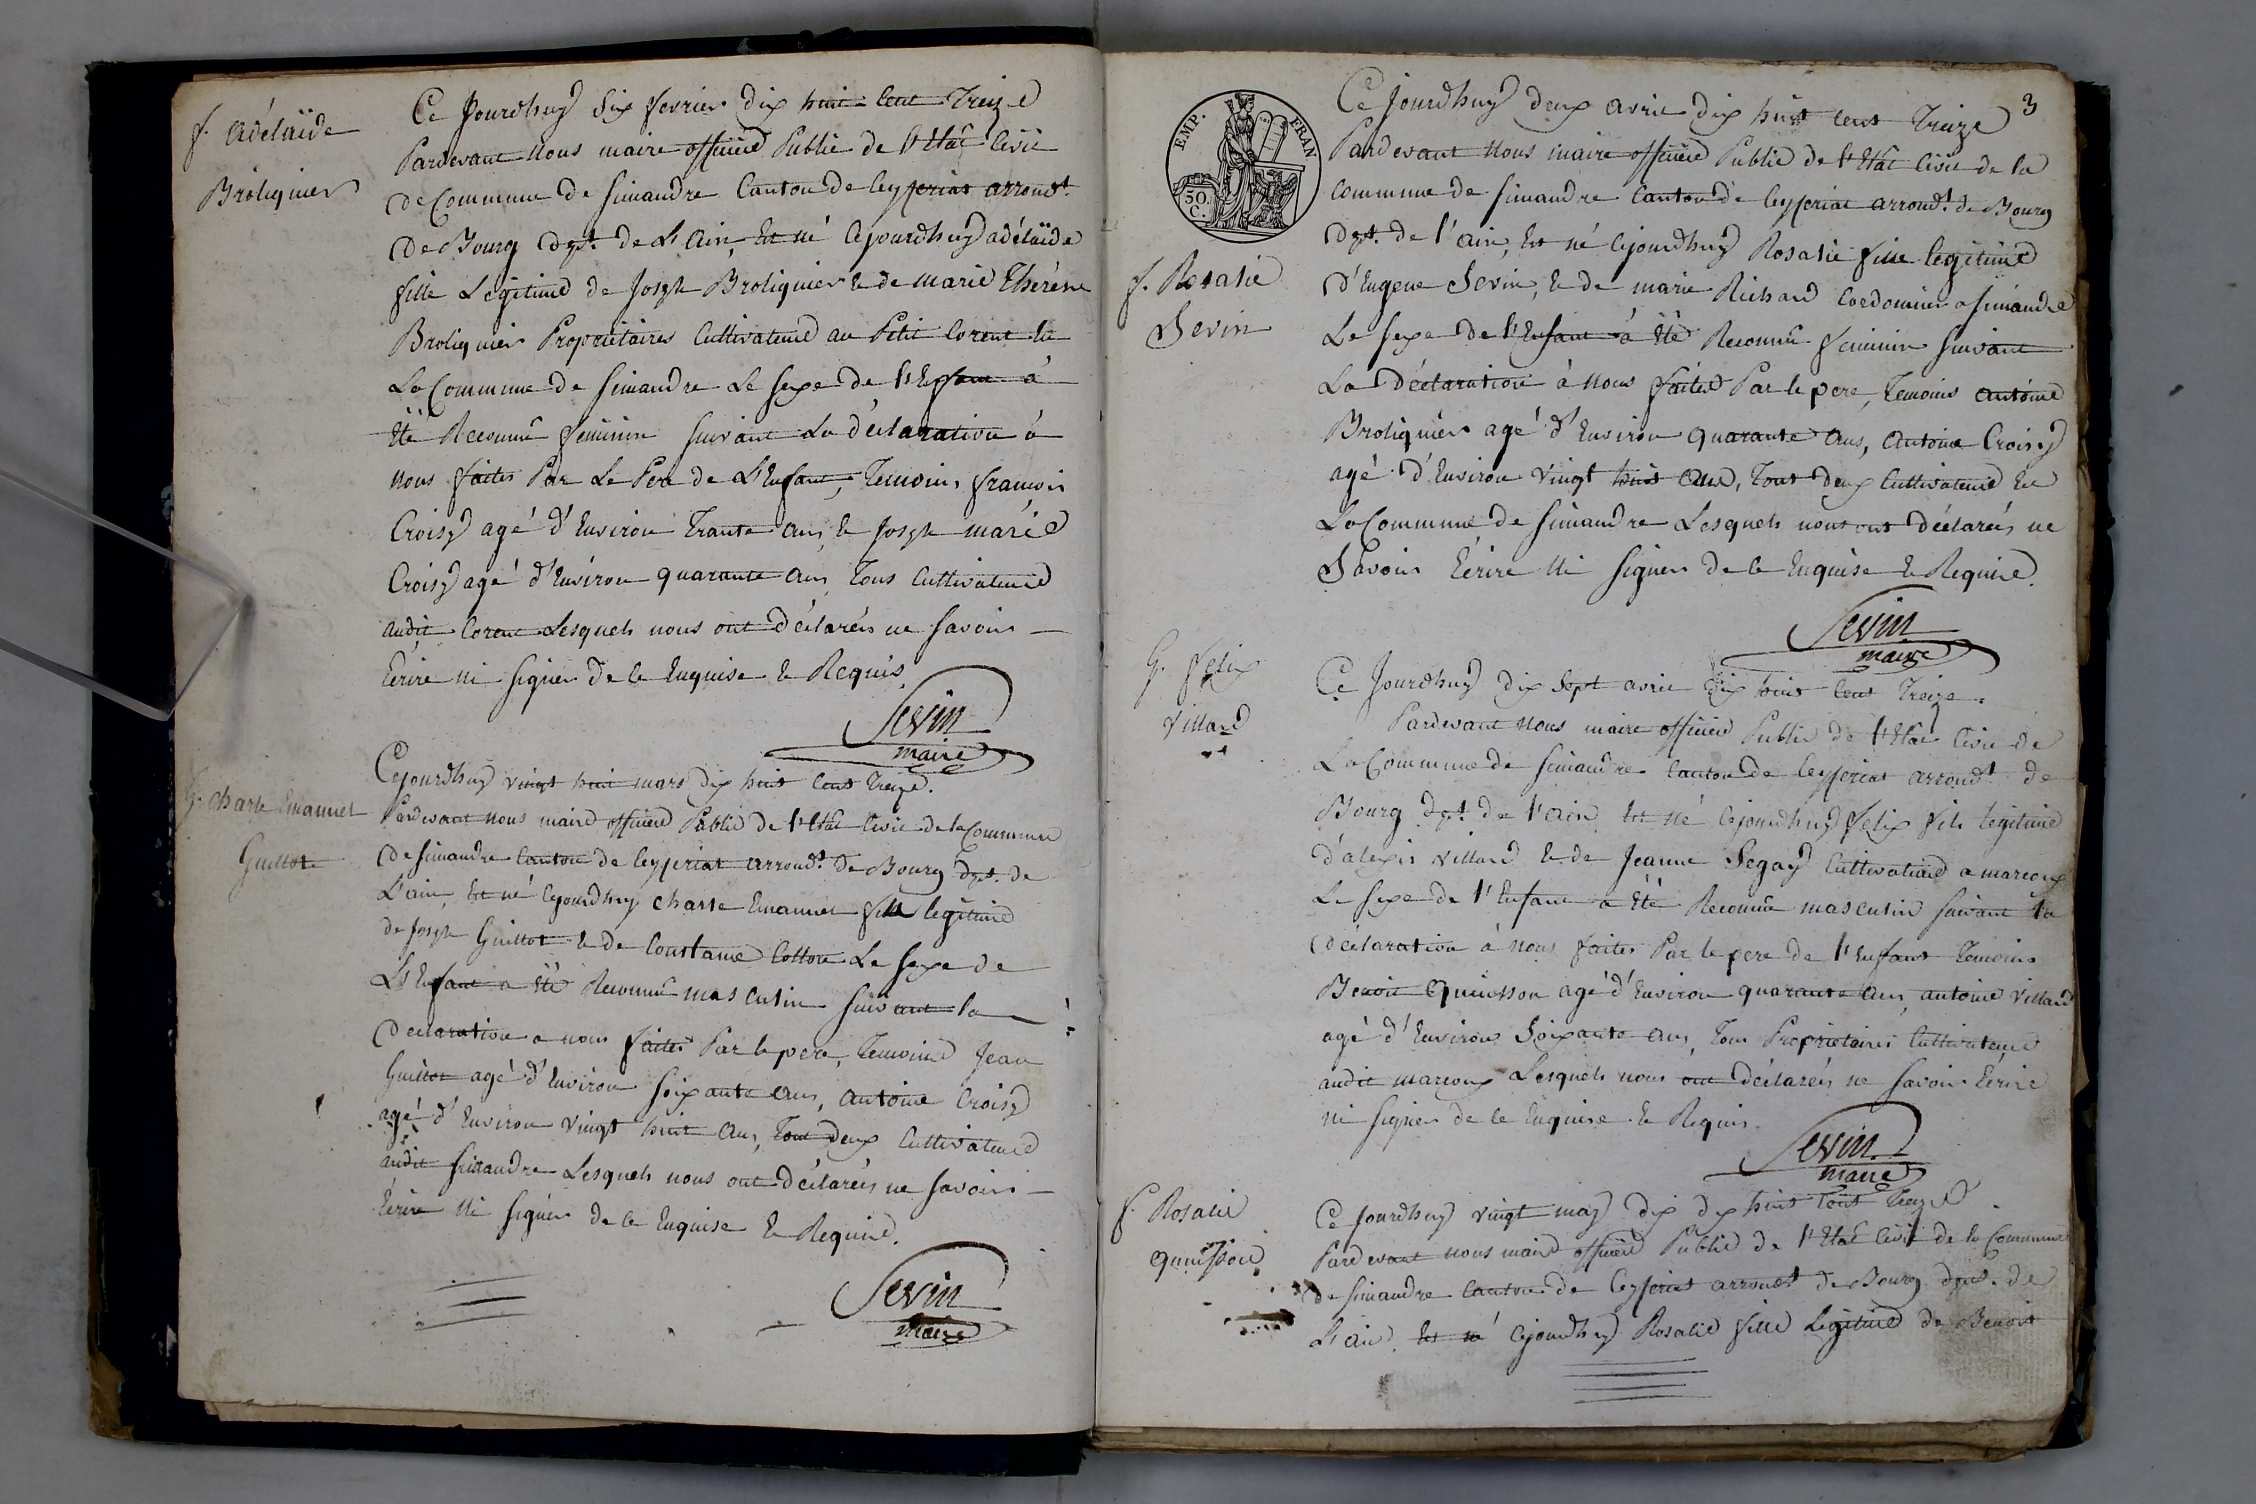 f. Adélaïde
Broliquier
Ce Jourdhuy Six fevrier dix huit Cent Treize
Pardevant Nous maire officier Public de l'état Civil
de Commune de Simandre Canton de Ceyzeriat arrondt.
de Bourg dpt. de L'ain, Est né Cejourdhuy adélaïde
fille Légitime de Joseph Broliquier & de marie Thérèse
Broliquier Propriétaires Cultivateurs au Petit Corent
La Commune de Simandre Le Sexe de l'Enfant à
Eté Reconnu feminin Suivant La déclaration à
nous faites Par Le Pere de L'Enfant, Temoins françois
Croisy agé d'Environ Trante ans, & Joseph marie
Croisy agé d'Environ quarante ans Tous Cultivateurs
audit Corent Lesquels nous ont déclarés ne Savoir
Ecrire ni Signer de Ce Enquise & Requis.
Sevin
maire
G. Charle Emanuel
Guillot
Cejourdhuy vingt huit mars dix huit Cent Treize.
Pardevant nous maire officier Public de l'Etat Civil de la Commune
de Simandre Canton de Ceyzeriat arrondt. de Bourg dpt. de
L'ain, Est né Cejourdhuy Charle Emanuel fils legitime
de Joseph Guillot & de Constance Cotton Le Sexe de
L'Enfant a Eté Reconnu masculin Suivant la
Declaration a nous faites Par le pere, Temoins Jean
Guillot agé d'Environ Soixante ans, Antoine Croisy
agé d'Environ vingt huit ans, Tout deux Cultivateurs
audit Simandre Lesquels nous ont déclarés ne Savoir
Ecrire Ni Signer de Ce Enquise & Requis.
Sevin
maire
3
EMP. FRAN
50.
C.
f. Rosalie
Sevin
Ce Jourdhuy deux avril dix huit cent Treize
Pardevant Nous maire officier Public de l'Etat Civil de la
Commune de Simandre Canton de Ceyzeriat arrondt. de Bourg
dpt. de l'ain, Est né Cejourdhuy Rosalie fille legitime
d'Eugene Sevin, & de marie Richard Cordonnier a Simandre
Le Sexe de l'Enfant à Eté Reconnu feminin Suivant
La Déclaration à Nous faites Par le pere, Temoins antoine
Broliquier agé d'Environ quarante ans, Antoine Croisy
agé d'Environ vingt huit ans, Tout deux Cultivateurs En
La Commune de Simandre Lesquels nous ont Déclarés ne
Savoir Ecrire Ni Signer de Ce Enquise & Requise.
Sevin
maire
G. Felix
Villard
Ce Jourdhuy dix Sept avril dix huit Cent Treize.
Pardevant Nous maire officier Public de l'Etat Civil de
La Commune de Simandre Canton de Ceyzeriat arrondt. de
Bourg dpt. de l'ain Est Né Cejourdhuy Felix fils legitime
d'alexis Villard & de Jeanne Segay Cultivateurs a marcoux
Le Sexe de l'Enfant a été Reconnu masculin Suivant la
Déclaration à nous faites Par le pere de l'Enfant Temoins
Benoit Quinisson agé d'Environ quarante ans, antoine Villard
agé d'Environ Soixante ans, Tous Propriétaires Cultivateurs
audit marcoux Lesquels nous ont déclarés ne Savoir Ecrire
ni Signer de Ce Enquise & Requis.
Sevin
maire
f. Rosalie
quinisson
Ce Jourdhuy vingt may dix dix huit Cent Treize.
Pardevant nous maire officier Public de l'Etat Civil de la Commune
de Simandre Canton de Ceyzeriat arrondt de Bourg dpt. de
L'ain. Est né Cejourdhuy Rosalie fille Légitime de Benoit